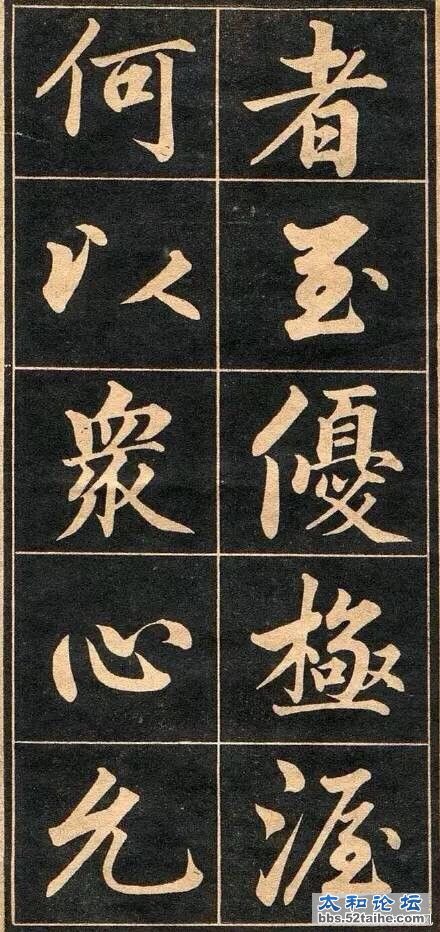 者至優極渥
何以衆心允
太和论坛
bbs.52taihe.com